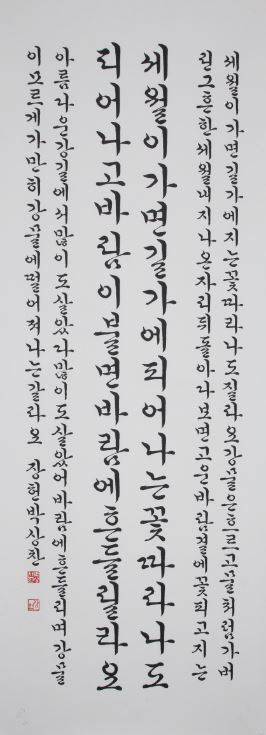 세월이가면길가에지는꽃따라나도질라오강물은흐르고물처럼가버
린그흔한세월내지나온자리뒤돌아다보면고운바람결에꽃피고지는
세월이가면길가에피어나는꽃따라나도
피어나고바람이불면바람에흔들릴라오
아름다운강길에서많이도살았다많이도살았어바람에흔들리며강물
이모르게가만히강물에떨어져나는갈라오 장헌박상찬